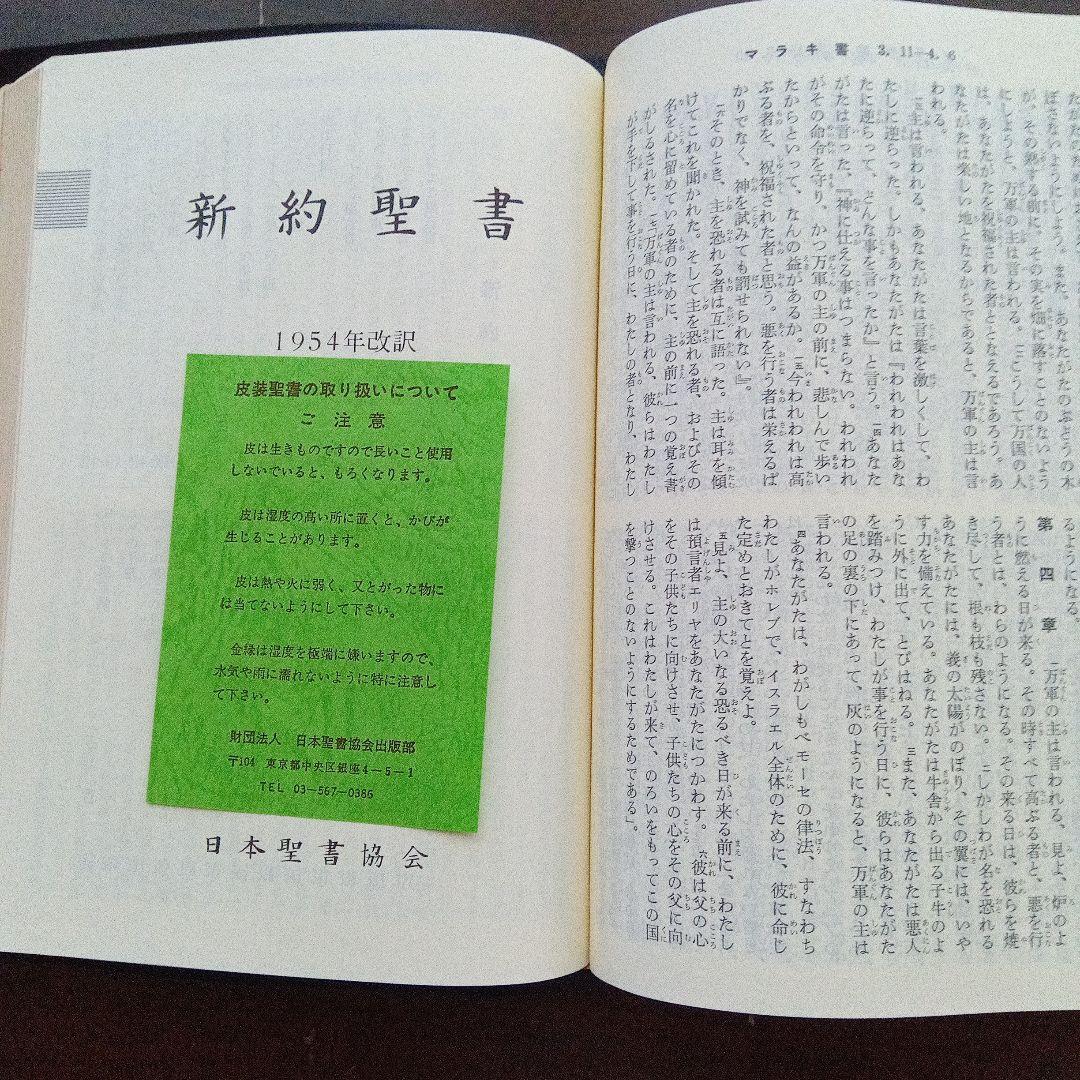 マラキ書 3, 11―4, 6
ぼさないようにしよう。また、あなたがたのぶどうの木
が、その熟する前に、その実を畑に落すことのないよう
にしようと、万軍の主は言われる。一二こうして万国の人
は、あなたがたを祝福された者ととなえるであろう。あ
なたがたは楽しい地となるからであると、万軍の主は言
われる。
一三主は言われる、あなたがたは言葉を激しくして、わ
たしに逆らった。しかもあなたがたは『われわれはあな
たに逆らって、どんな事を言ったか』と言う。一四あなた
がたは言った、『神に仕える事はつまらない。われわれ
がその命令を守り、かつ万軍の主の前に、悲しんで歩い
たからといって、なんの益があるか。一五今われわれは高
ぶる者を、祝福された者と思う。悪を行う者は栄えるば
かりでなく、神を試みても罰せられない』。
一六そのとき、主を恐れる者は互に語った。主は耳を傾
けてこれを聞かれた。そして主を恐れる者、およびその
名を心に留めている者のために、主の前に一つの覚え書
がしるされた。一七「万軍の主は言われる、彼らはわたし
が手を下して事を行う日に、わたしの者となり、わたし
るようになる。
第四章 一万軍の主は言われる、見よ、炉のよ
うに燃える日が来る。その時すべて高ぶる者と、悪を行
う者とは、わらのようになる。その来る日は、彼らを焼
き尽して、根も枝も残さない。二しかしわが名を恐れる
あなたがたには、義の太陽がのぼり、その翼には、いや
す力を備えている。あなたがたは牛舎から出る子牛のよ
うに外に出て、とびはねる。三また、あなたがたは悪人
を踏みつけ、わたしが事を行う日に、彼らはあなたがた
の足の裏の下にあって、灰のようになると、万軍の主は
言われる。
四あなたがたは、わがしもべモーセの律法、すなわち
わたしがホレブで、イスラエル全体のために、彼に命じ
た定めとおきてとを覚えよ。
五見よ、主の大いなる恐るべき日が来る前に、わたし
は預言者エリヤをあなたがたにつかわす。六彼は父の心
をその子供たちに向けさせ、子供たちの心をその父に向
けさせる。これはわたしが来て、のろいをもってこの国
を撃つことのないようにするためである」。
新約聖書
1954年改訳
皮装聖書の取り扱いについて
ご注意
皮は生きものですので長いこと使用
しないでいると、もろくなります。
皮は湿度の高い所に置くと、かびが
生じることがあります。
皮は熱や火に弱く、又とがった物に
は当てないようにして下さい。
金縁は湿度を極端に嫌いますので、
水気や雨に濡れないように特に注意し
て下さい。
財団法人 日本聖書協会出版部
〒104 東京都中央区銀座4-5-1
TEL 03-567-0386
日本聖書協会